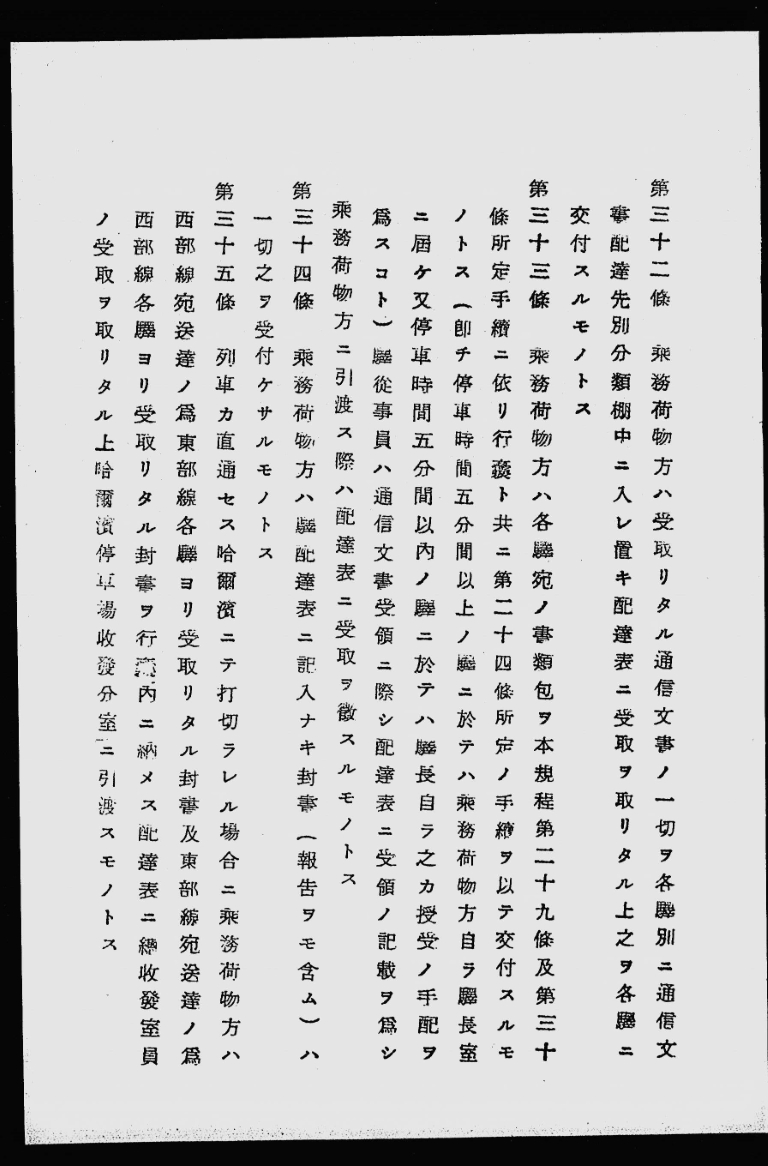 第三十二條　乘務荷物方ハ受取リタル通信文書ノ一切ヲ各驛別ニ通信文
書配達先別分類棚中ニ入レ置キ配達表ニ受取ヲ取リタル上之ヲ各驛ニ
交付スルモノトス
第三十三條　乘務荷物方ハ各驛宛ノ書類包ヲ本規程第二十九條及第三十
條所定手續ニ依リ行嚢ト共ニ第二十四條所定ノ手續ヲ以テ交付スルモ
ノトス（卽チ停車時間五分間以上ノ驛ニ於テハ乘務荷物方自ラ驛長室
ニ屆ケ又停車時間五分間以內ノ驛ニ於テハ驛長自ラ之カ授受ノ手配ヲ
爲スコト）驛從事員ハ通信文書受領ニ際シ配達表ニ受領ノ記載ヲ爲シ
乘務荷物方ニ引渡ス際ハ配達表ニ受取ヲ徵スルモノトス
第三十四條　乘務荷物方ハ驛配達表ニ記入ナキ封書（報告ヲモ含ム）ハ
一切之ヲ受付ケサルモノトス
第三十五條　列車カ直通セス哈爾濱ニテ打切ラレル場合ニ乘務荷物方ハ
西部線宛送達ノ爲東部線各驛ヨリ受取リタル封書及東部線宛送達ノ爲
西部線各驛ヨリ受取リタル封書ヲ行嚢內ニ納メス配達表ニ纒收發室員
ノ受取ヲ取リタル上哈爾濱停車場收發分室ニ引渡スモノトス